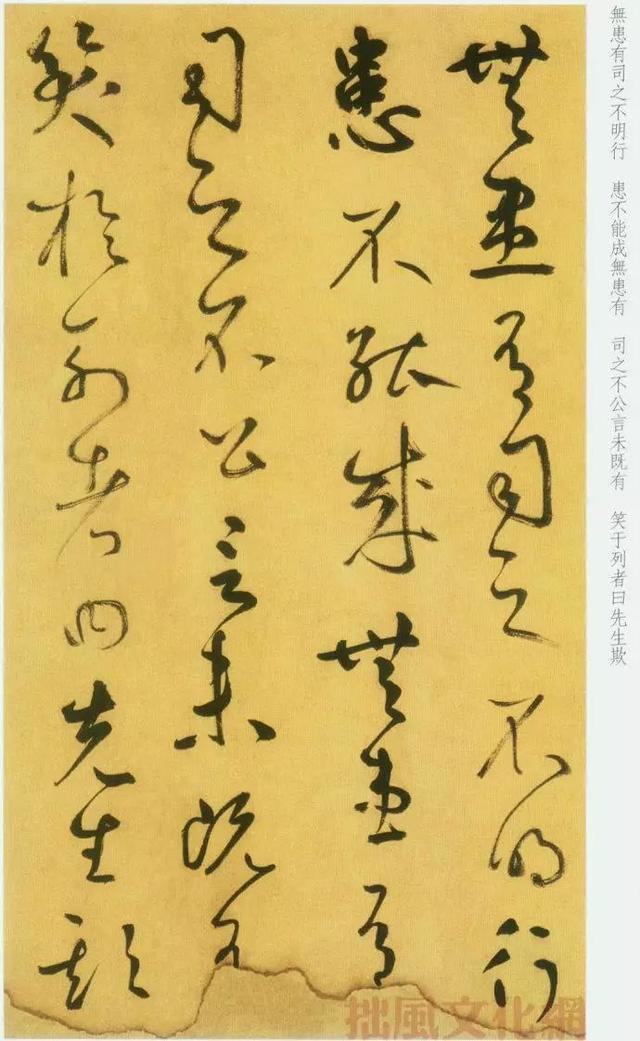 無患有司之不明行 患不能成無患有 司之不公言未既有 笑于列者曰先生欺
無患有司之不明行
患不能成無患有
司之不公言未既有
笑於列者曰先生欺
拙風文化網